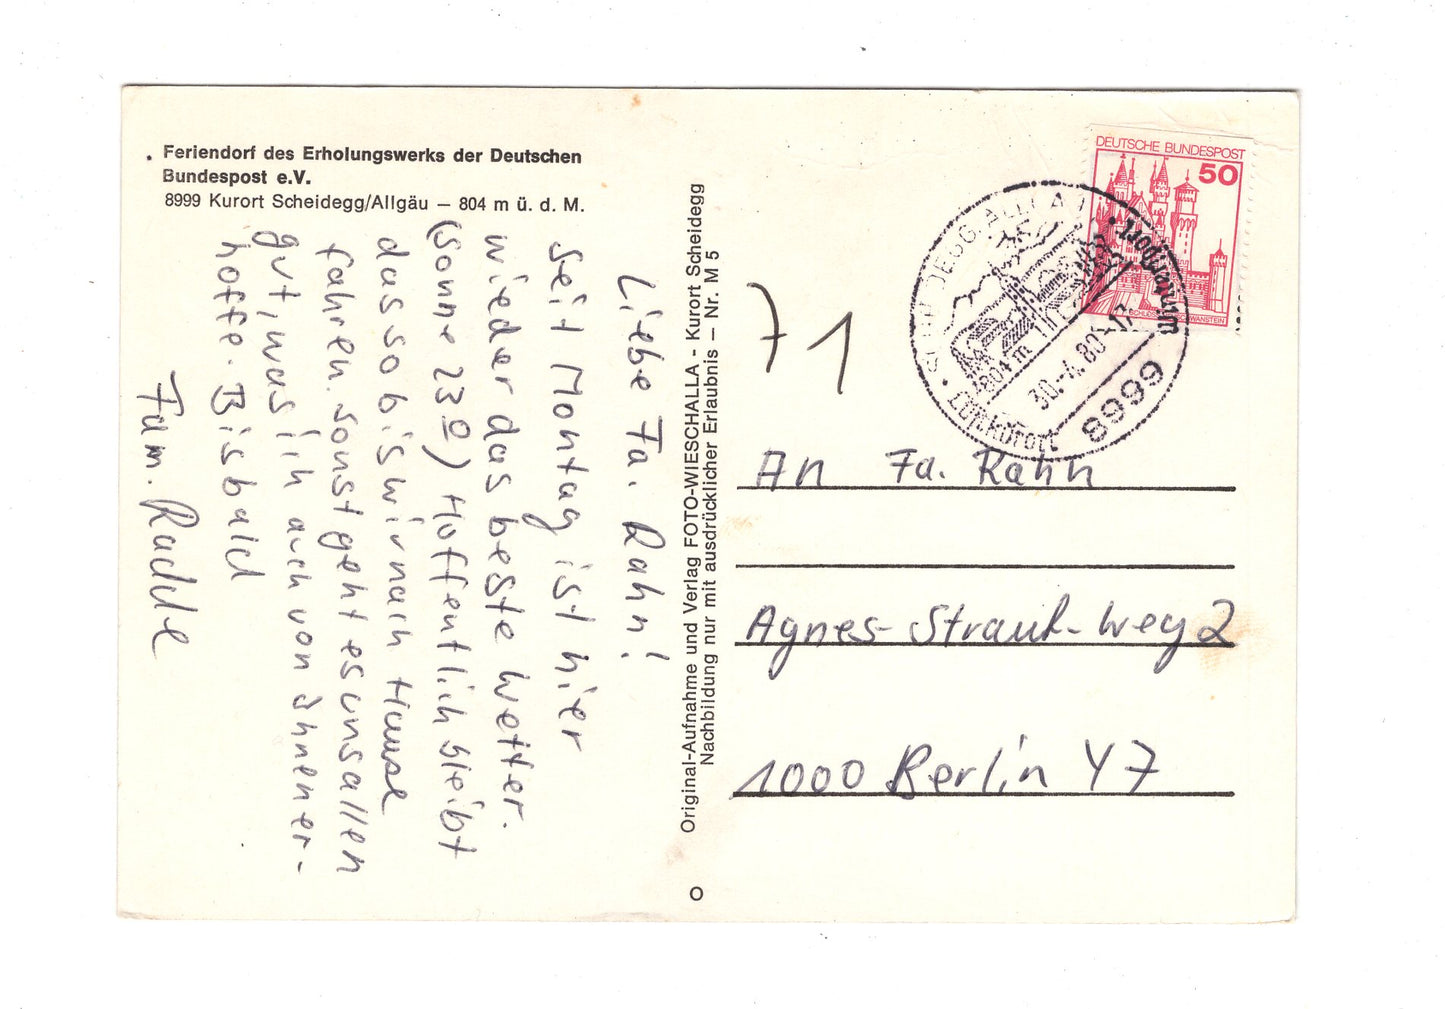 Feriendorf des Erholungswerks der Deutschen
Bundespost e.V.
8999 Kurort Scheidegg/Allgäu – 804 m ü. d. M.
Liebe Fa. Rahn!
Seit Montag ist hier
wieder das beste Wetter.
(Sonne 23º) Hoffentlich bleibt
das so bis wir nach Hause
fahren. Sonst geht es uns allen
gut, was ich auch von ihnen er-
hoffe. Bis bald
Fam. Radde
Original-Aufnahme und Verlag FOTO-WIESCHALLA - Kurort Scheidegg
Nachbildung nur mit ausdrücklicher Erlaubnis – Nr. M 5
O
71
DEUTSCHE BUNDESPOST
50
SCHLOSS NEUSCHWANSTEIN
SCHEIDEGG, ALLGÄU
Wintersport
804 m
30.-4.80-17
8999
Luftkurort
An Fa. Rahn
Agnes-Straub-Weg 2
1000 Berlin 47